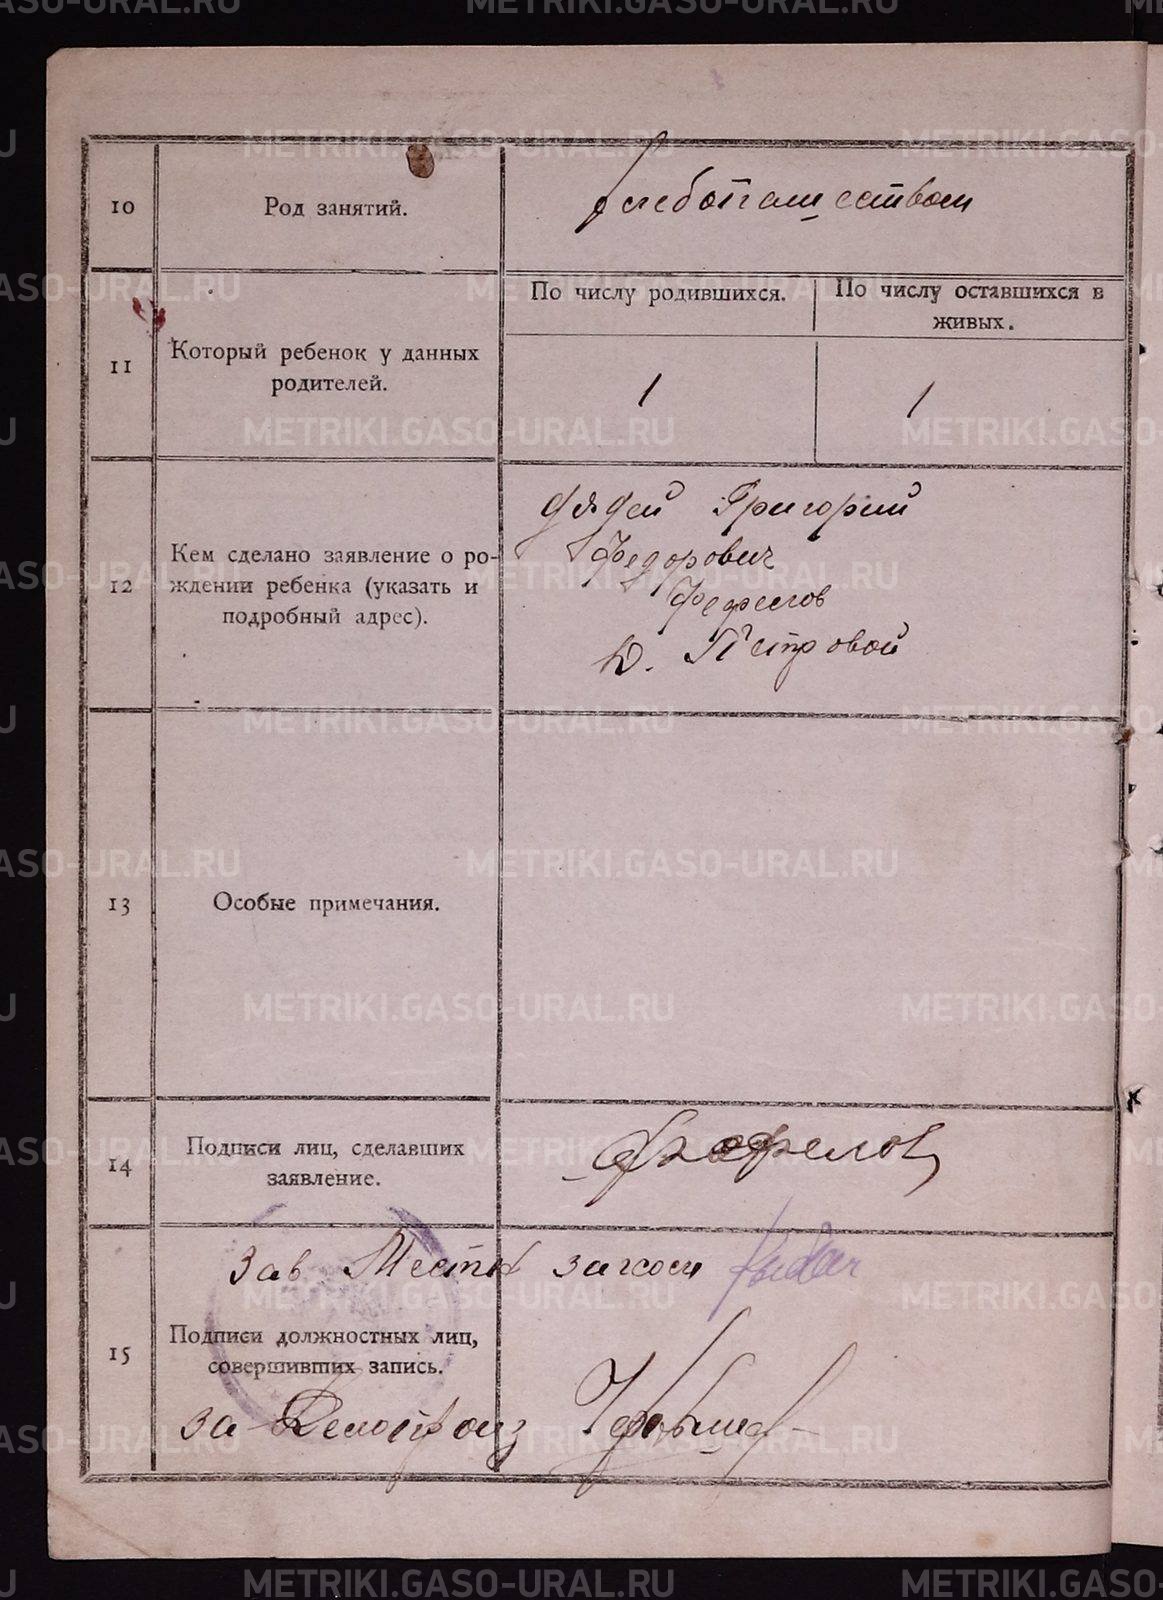 10
Род занятий.
хлебопашеством
11
Который ребенок у данных
родителей.
По числу родившихся.
По числу оставшихся в
живых.
1
1
12
Кем сделано заявление о ро-
ждении ребенка (указать и
подробный адрес).
дядей Григорий
Федорович
Фефелов
д. Петровой
13
Особые примечания.
14
Подписи лиц, сделавших
заявление.
Фефелов
Зав Местн загсом
15
Подписи должностных лиц,
совершивших запись.
за Делопроиз
METRIKI.GASO-URAL.RU